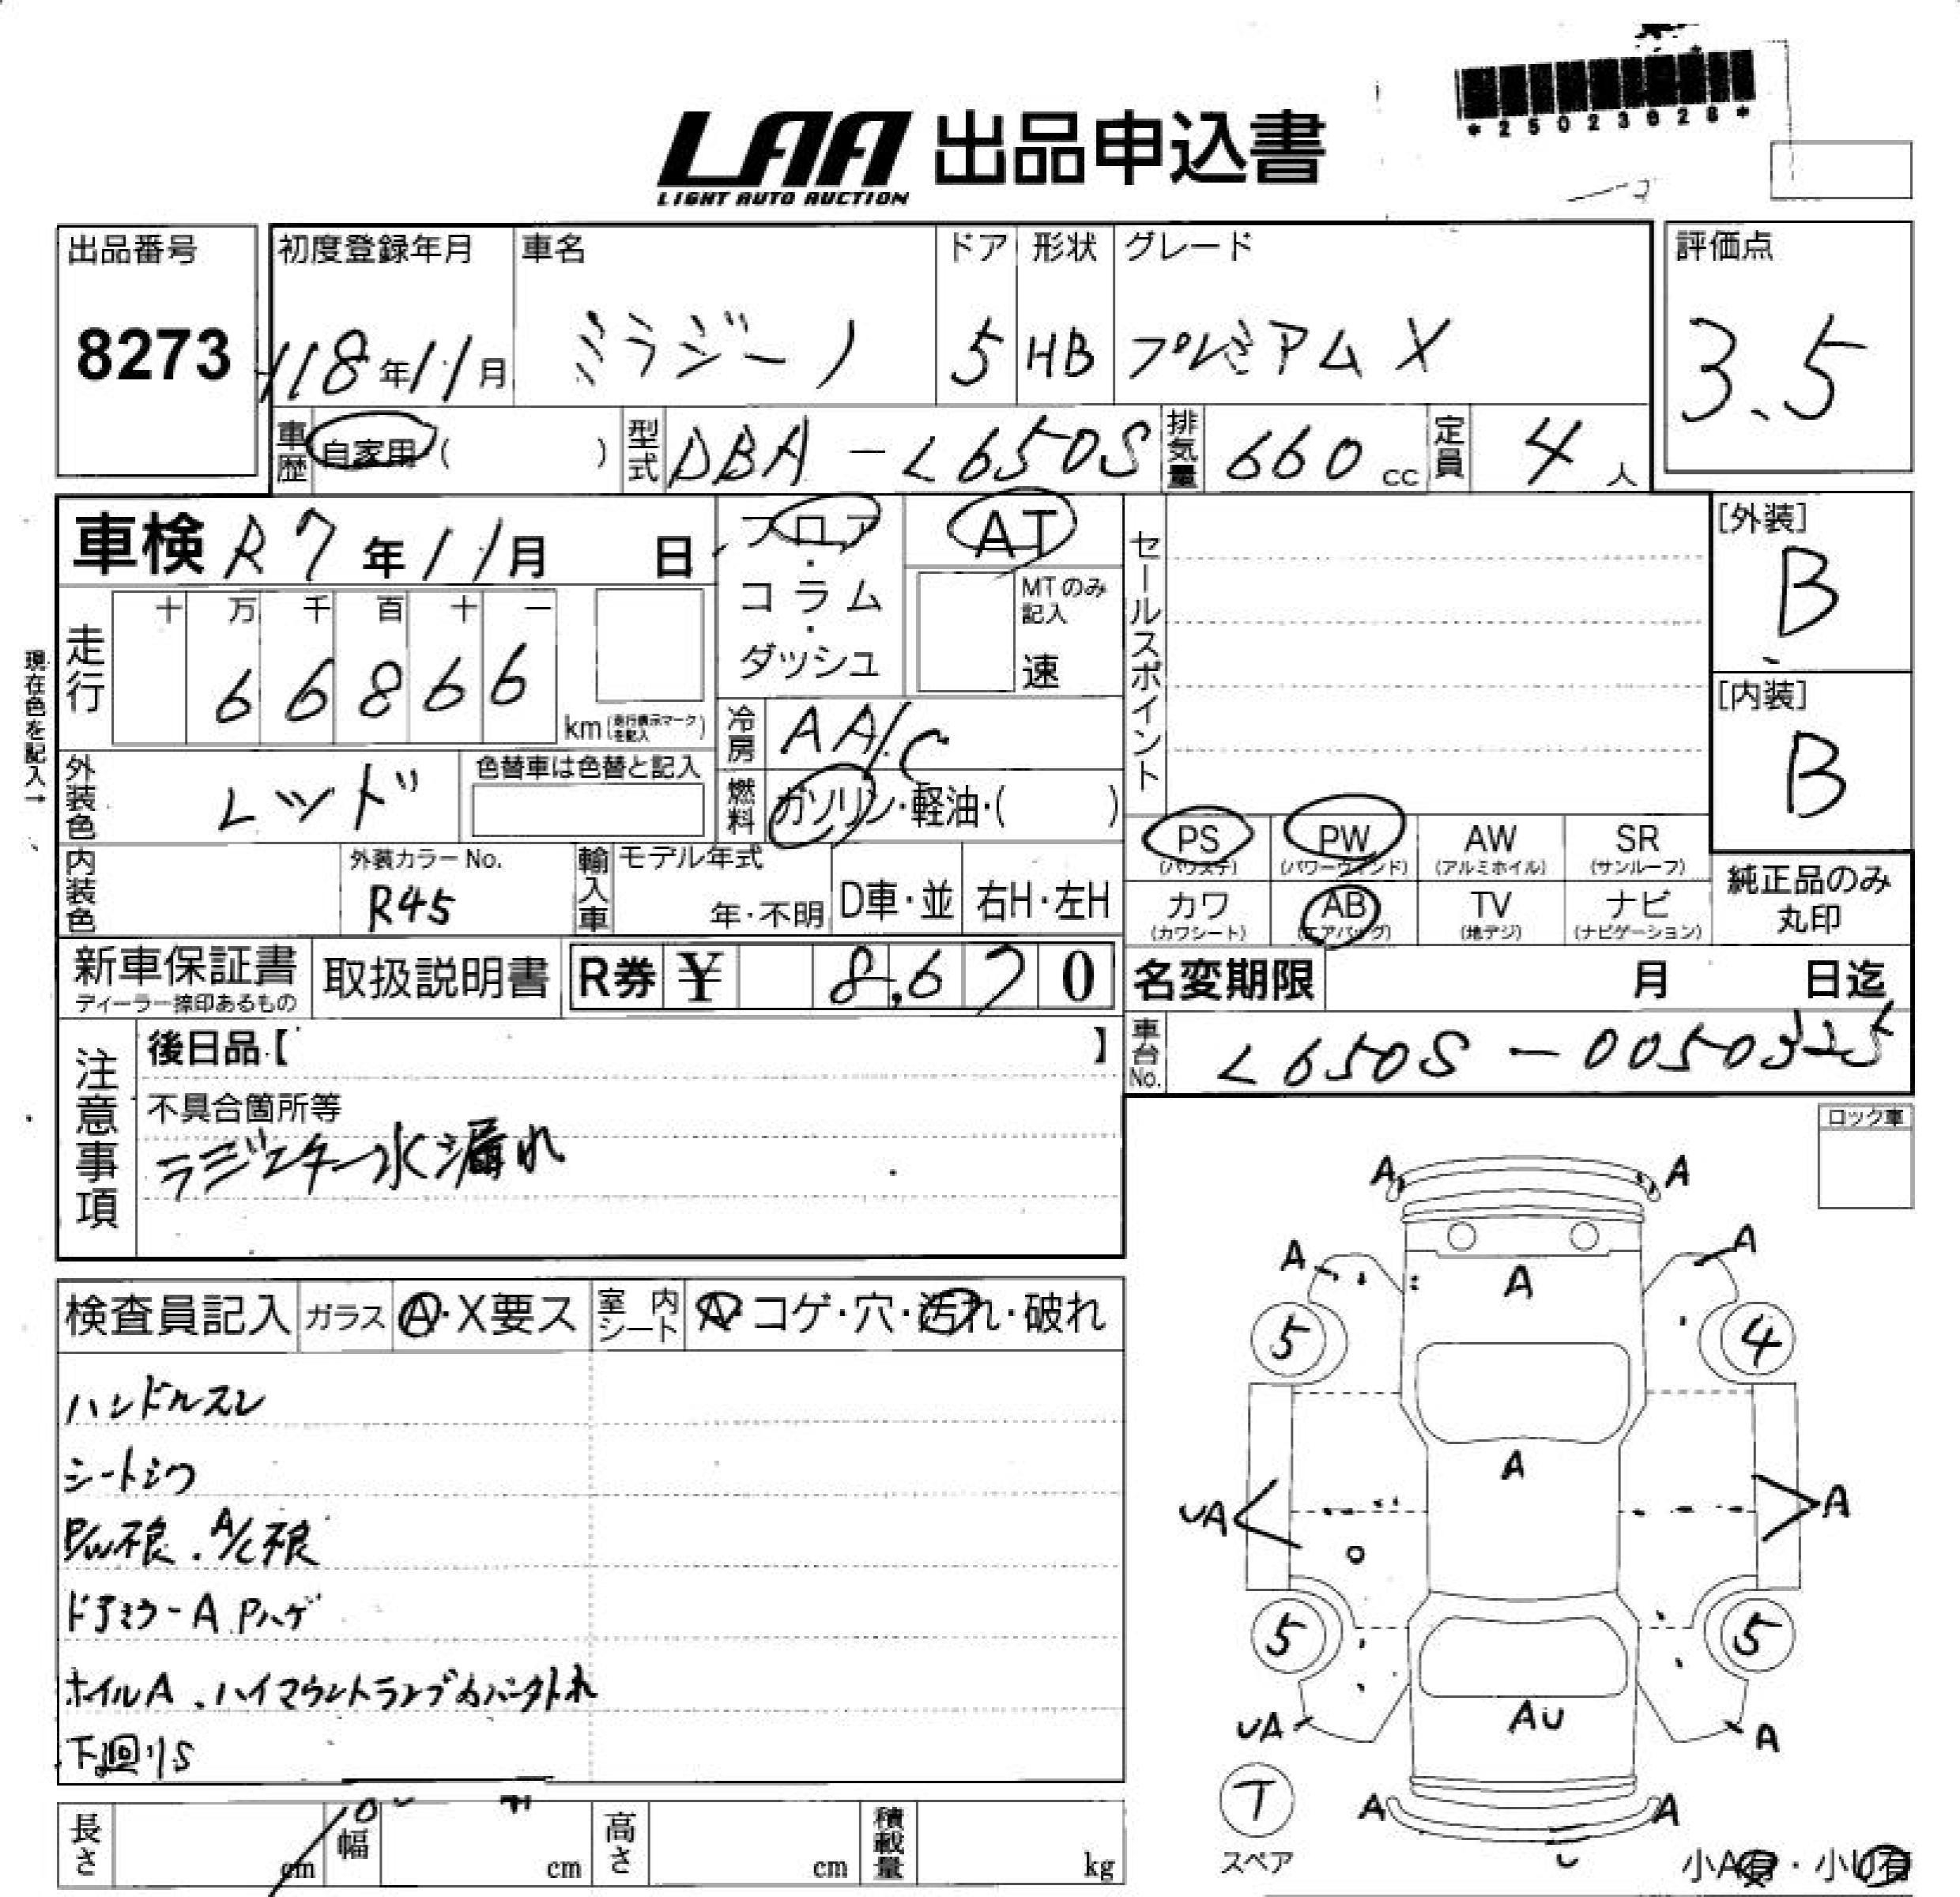 *25023028*
LAA 出品申込書
LIGHT AUTO AUCTION
出品番号 初度登録年月 車名 ドア 形状 グレード 評価点
8273 H18年11月 ミラジーノ 5 HB プレミアムX 3.5
車歴 自家用( ) 型式 DBA-L650S 排気量 660cc 定員 4人
車検 R7年11月 日 フロア・コラム・ダッシュ AT
MTのみ記入 速
セールスポイント
[外装] B
[内装] B
現在色を記入→
走行 十 万 千 百 十 一
6 6 8 6 6 km(走行表示マークを記入)
冷房 AA/C
外装色 レッド 色替車は色替と記入
燃料 ガソリン・軽油・( )
PS(パワステ) PW(パワーウィンド) AW(アルミホイル) SR(サンルーフ)
カワ(カワシート) AB(エアバッグ) TV(地デジ) ナビ(ナビゲーション)
純正品のみ丸印
内装色 外装カラーNo. R45 輸入車 モデル年式 年・不明 D車・並 右H・左H
新車保証書 取扱説明書 R券 ¥ 8,670
ディーラー捺印あるもの
名変期限 月 日迄
車台No. L650S-0050325
注意事項 後日品【 】
不具合箇所等
ラジエター水漏れ
ロック車
検査員記入 ガラス A・X要ス 室内シート A・コゲ・穴・汚れ・破れ
ハンドルスレ
シートシワ
P/W不良.A/C不良
ドアミラーA Pハゲ
ホイルA.ハイマウントランプカバー外れ
下廻りS
A A
A A
A
5 4
A
UA A
5 5
UA AU A
T
スペア
A A
U
小A有・小U有
長さ cm 幅 cm 高さ cm 積載量 kg